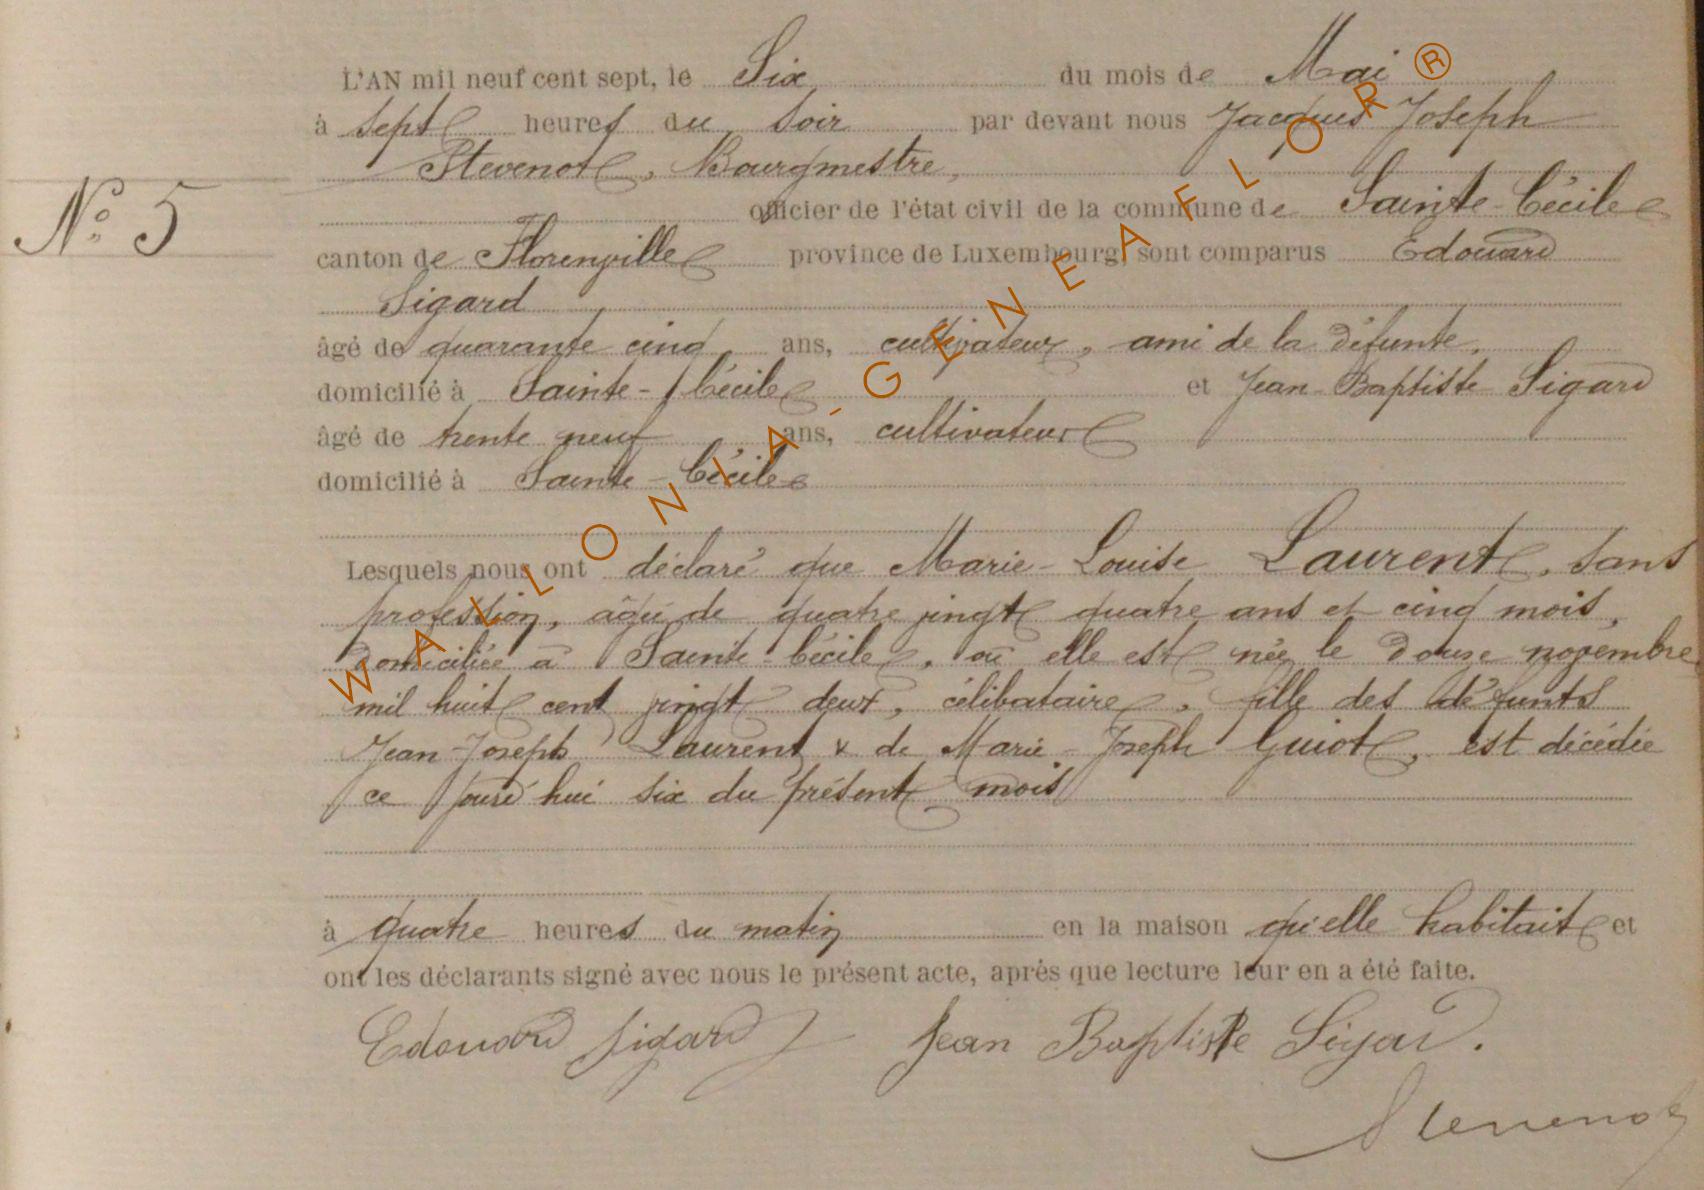 L'AN mil neuf cent sept, le Six du mois de Mai
à sept heures du soir par devant nous Jacques Joseph
Stevenot, Bourgmestre,
officier de l'état civil de la commune de Sainte-Cécile
N° 5
canton de Florenville province de Luxembourg, sont comparus Edouard
Sigard
âgé de quarante cinq ans, cultivateur, ami de la défunte,
domicilié à Sainte-Cécile et Jean-Baptiste Sigard
âgé de trente neuf ans, cultivateur
domicilié à Sainte-Cécile
Lesquels nous ont déclaré que Marie-Louise Laurent, sans
profession, âgée de quatre vingt quatre ans et cinq mois,
domiciliée à Sainte-Cécile, où elle est née le douze novembre
mil huit cent vingt deux, célibataire, fille des défunts
Jean-Joseph Laurent & de Marie-Joseph Guiot, est décédée
ce jourd'hui six du présent mois
à quatre heures du matin en la maison qu'elle habitait et
ont les déclarants signé avec nous le présent acte, après que lecture leur en a été faite.
Edouard Sigard Jean Baptiste Sigard.
Stevenot
WALLONIA-GENEAFLOR®